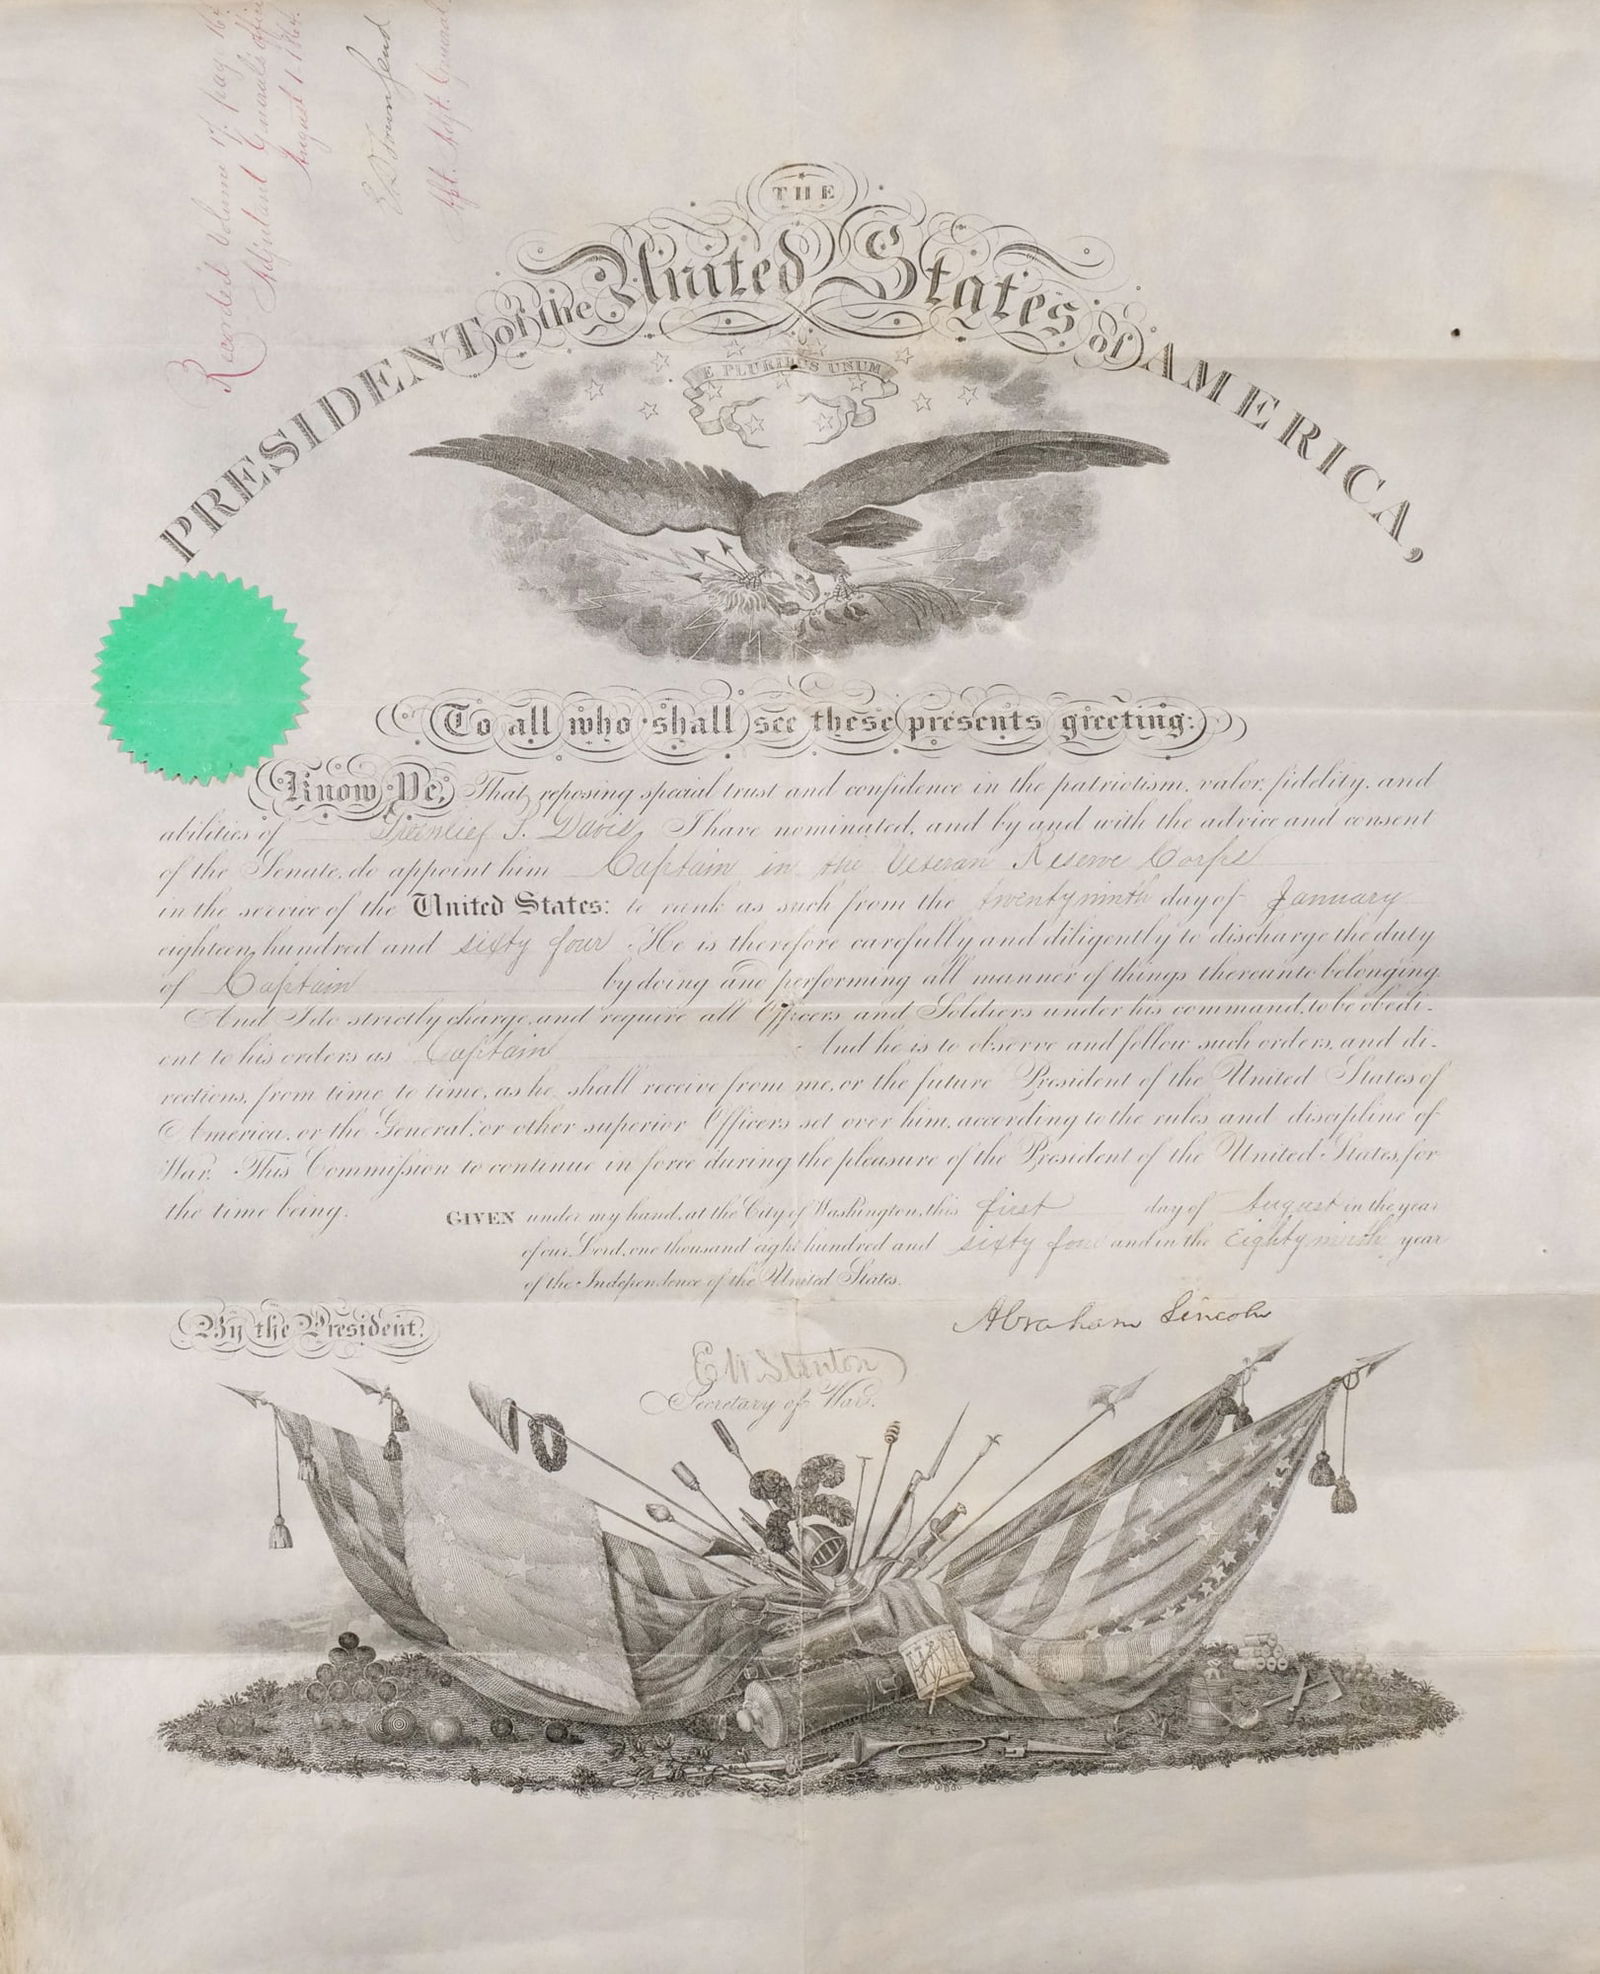 Recorded Volume 17. page 164.
Adjutant General's Office
August 1 1864.
E D Townsend
Asst. Adjt. General.
THE
PRESIDENT of the United States of AMERICA,
E PLURIBUS UNUM
To all who shall see these presents greeting:
Know Ye, That reposing special trust and confidence in the patriotism, valor, fidelity, and
abilities of Greenlief P. Davis, I have nominated, and by and with the advice and consent
of the Senate, do appoint him Captain in the Veteran Reserve Corps
in the service of the United States: to rank as such from the twenty ninth day of January
eighteen hundred and sixty four. He is therefore carefully and diligently to discharge the duty
of Captain by doing and performing all manner of things thereunto belonging.
And I do strictly charge, and require all Officers and Soldiers under his command, to be obedi-
ent to his orders as Captain And he is to observe and follow such orders, and di-
rections, from time to time, as he shall receive from me, or the future President of the United States of
America, or the General, or other superior Officers set over him, according to the rules and discipline of
War. This Commission to continue in force during the pleasure of the President of the United States, for
the time being.
GIVEN under my hand, at the City of Washington, this first day of August in the year
of our Lord, one thousand eight hundred and sixty four and in the Eighty ninth year
of the Independence of the United States.
By the President.
Abraham Lincoln
E M Stanton
Secretary of War.